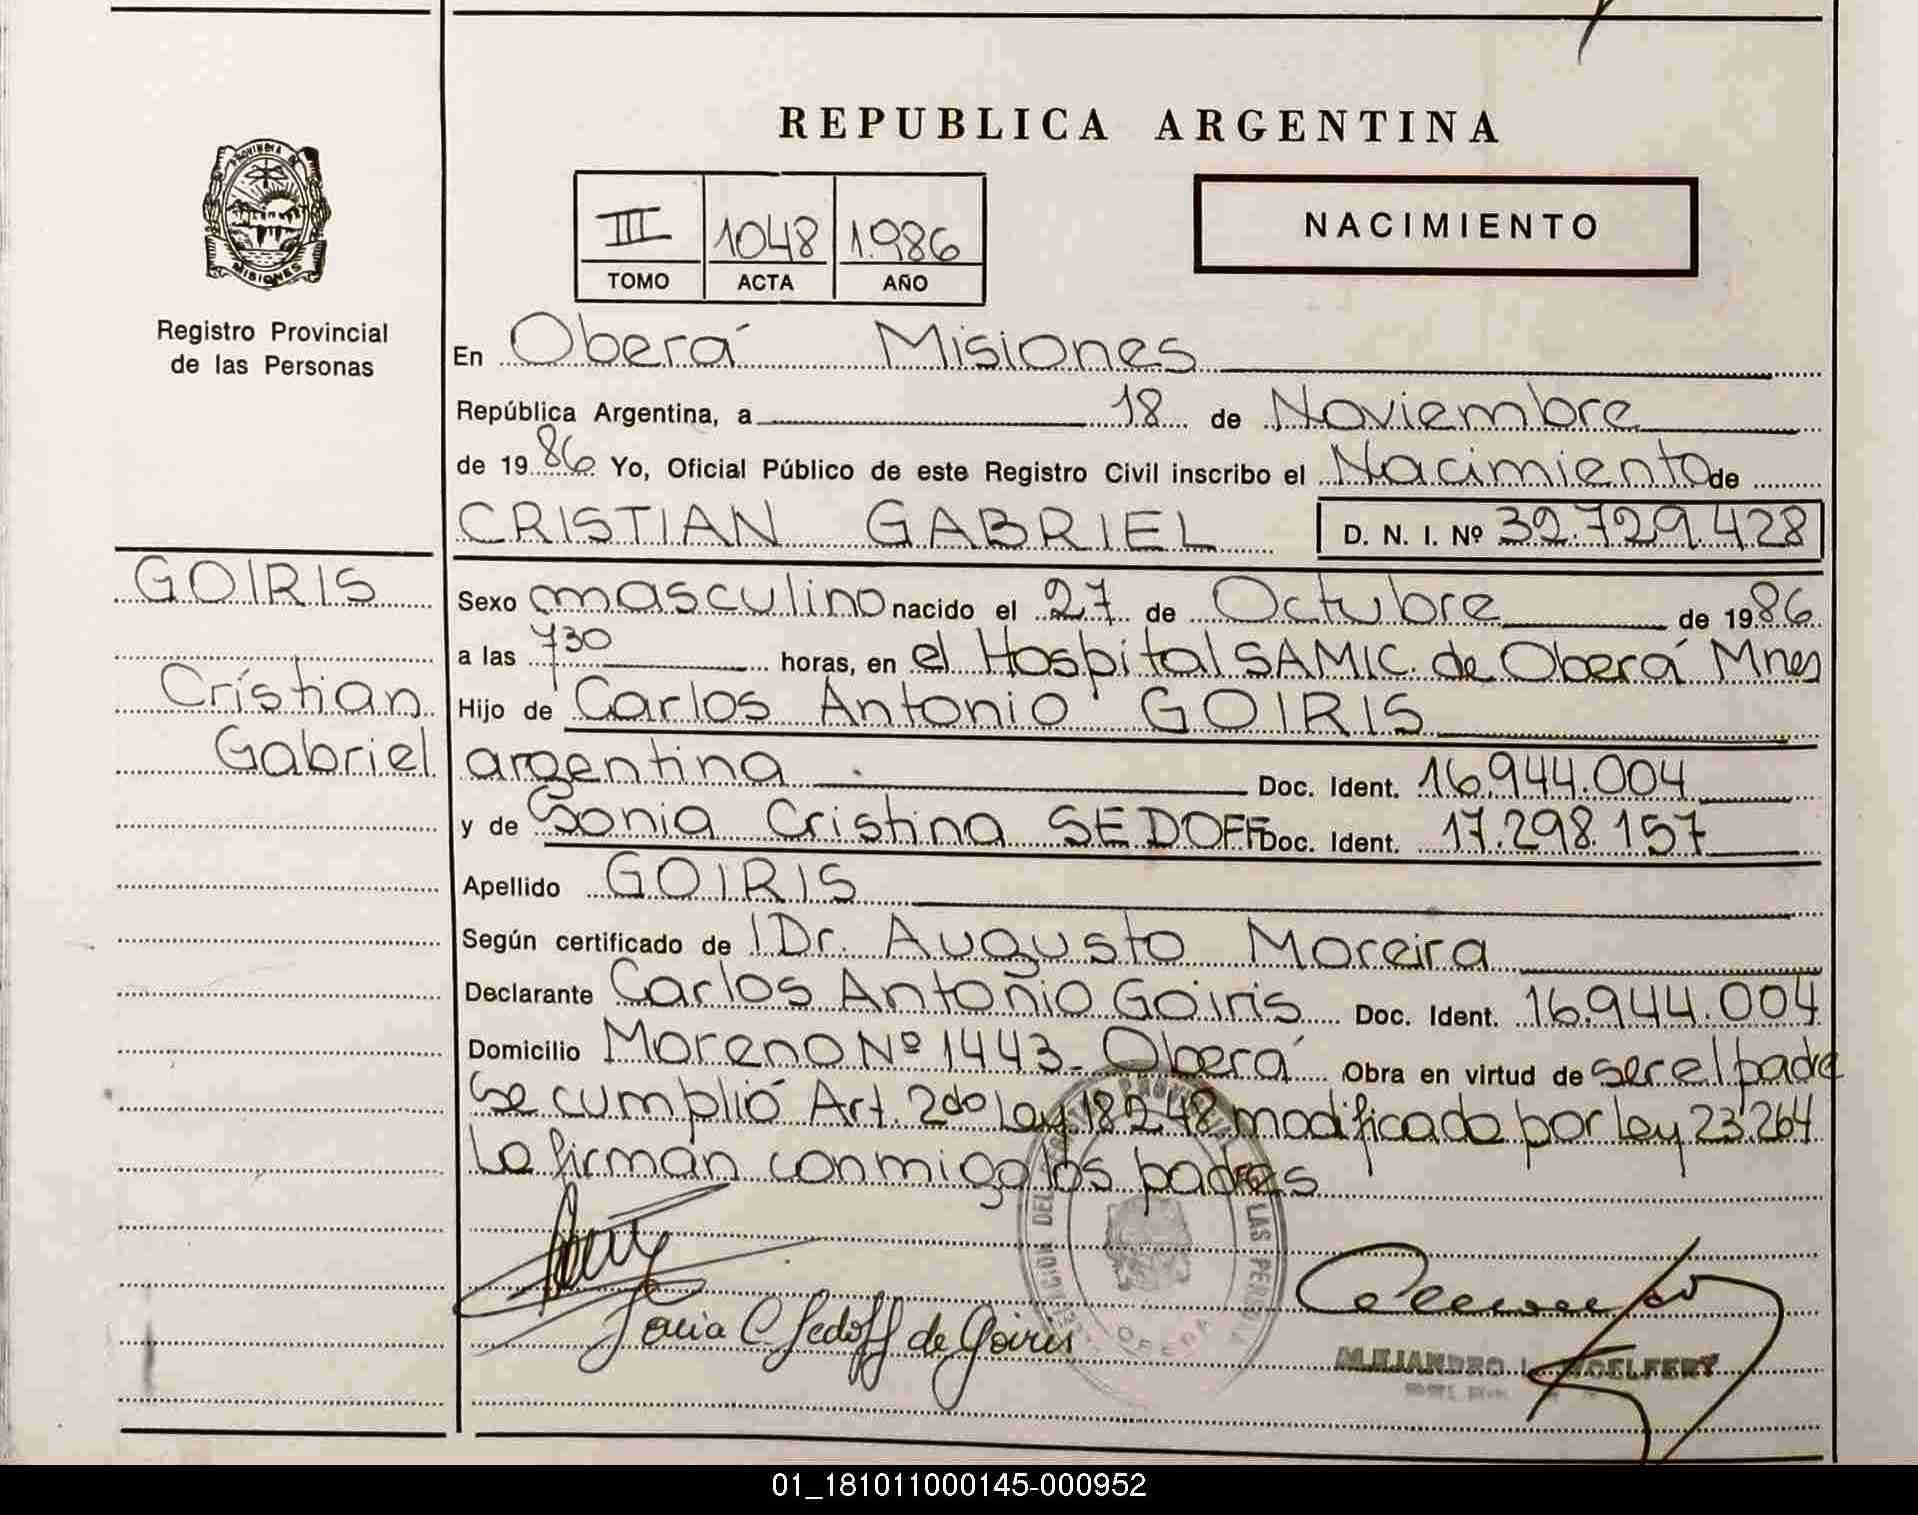 REPUBLICA ARGENTINA
PROVINCIA DE
MISIONES
Registro Provincial
de las Personas
III 1048 1.986
TOMO ACTA AÑO
NACIMIENTO
En Oberá Misiones
República Argentina, a 18 de Noviembre
de 19 86 Yo, Oficial Público de este Registro Civil inscribo el Nacimiento de
CRISTIAN GABRIEL D. N. I. Nº 32.729.428
GOIRIS
Cristian
Gabriel
Sexo masculino nacido el 27 de Octubre de 19 86
a las 730 horas, en el Hospital SAMIC. de Oberá Mnes
Hijo de Carlos Antonio GOIRIS
argentina Doc. Ident. 16.944.004
y de Sonia Cristina SEDOFF Doc. Ident. 17.298.157
Apellido GOIRIS
Según certificado de Dr. Augusto Moreira
Declarante Carlos Antonio Goiris Doc. Ident. 16.944.004
Domicilio Moreno Nº 1443_ Oberá Obra en virtud de ser el padre
Se cumplió Art. 2do Ley 18248 modificado por ley 23.264
Lo firman conmigo los padres
Sonia C. Sedoff de Goiris
LAS PERSONA
OBERA
ALEJANDRO
01_181011000145-000952